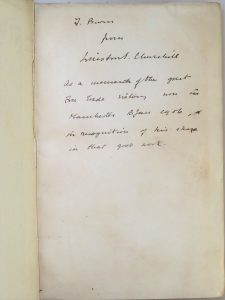 from
Winston S. Churchill
As a memento of the great
Free Trade victory won in
Manchester Jany 1906, &
in recognition of his share
in that good work.